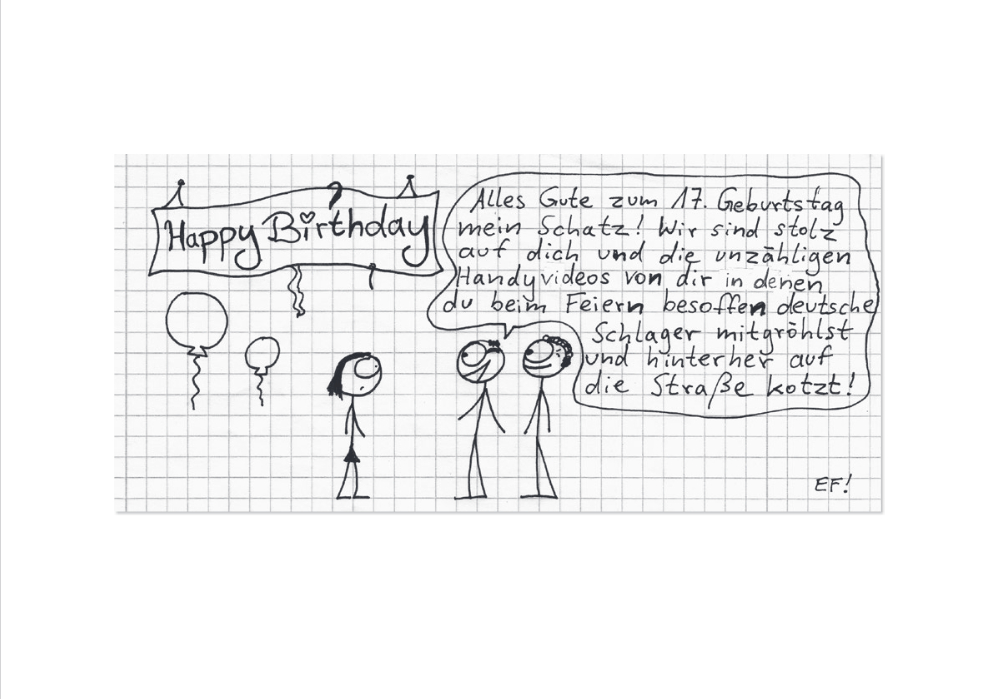 Happy Birthday
Alles Gute zum 17. Geburtstag
mein Schatz! Wir sind stolz
auf dich und die unzähligen
Handyvideos von dir in denen
du beim Feiern besoffen deutsche
Schlager mitgröhlst
und hinterher auf
die Straße kotzt!
EF!